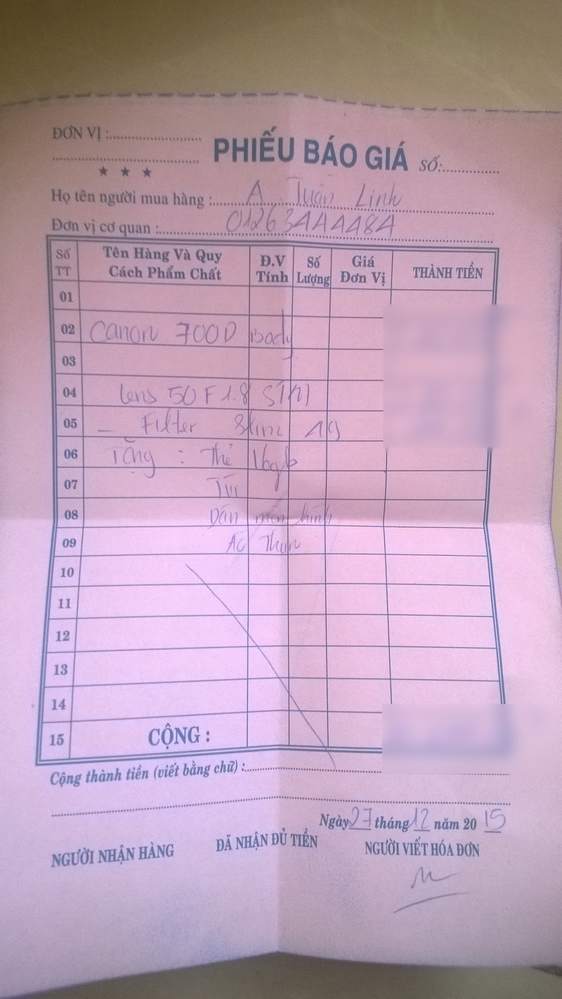 ĐƠN VỊ :
PHIẾU BÁO GIÁ SỐ:
★ ★ ★
Họ tên người mua hàng : A Tuấn Linh
Đơn vị cơ quan : 01263444484
Số TT Tên Hàng Và Quy Cách Phẩm Chất Đ.V Tính Số Lượng Giá Đơn Vị THÀNH TIỀN
01
02 Canon 700D Body
03
04 Lens 50 F1.8 STM
05 - Filter
06 Tặng : Thẻ 16gb
07 Túi
08 Dán màn hình
09 Áo Thun
10
11
12
13
14
15 CỘNG :
Cộng thành tiền (viết bằng chữ) :
Ngày 27 tháng 12 năm 2015
NGƯỜI NHẬN HÀNG ĐÃ NHẬN ĐỦ TIỀN NGƯỜI VIẾT HÓA ĐƠN